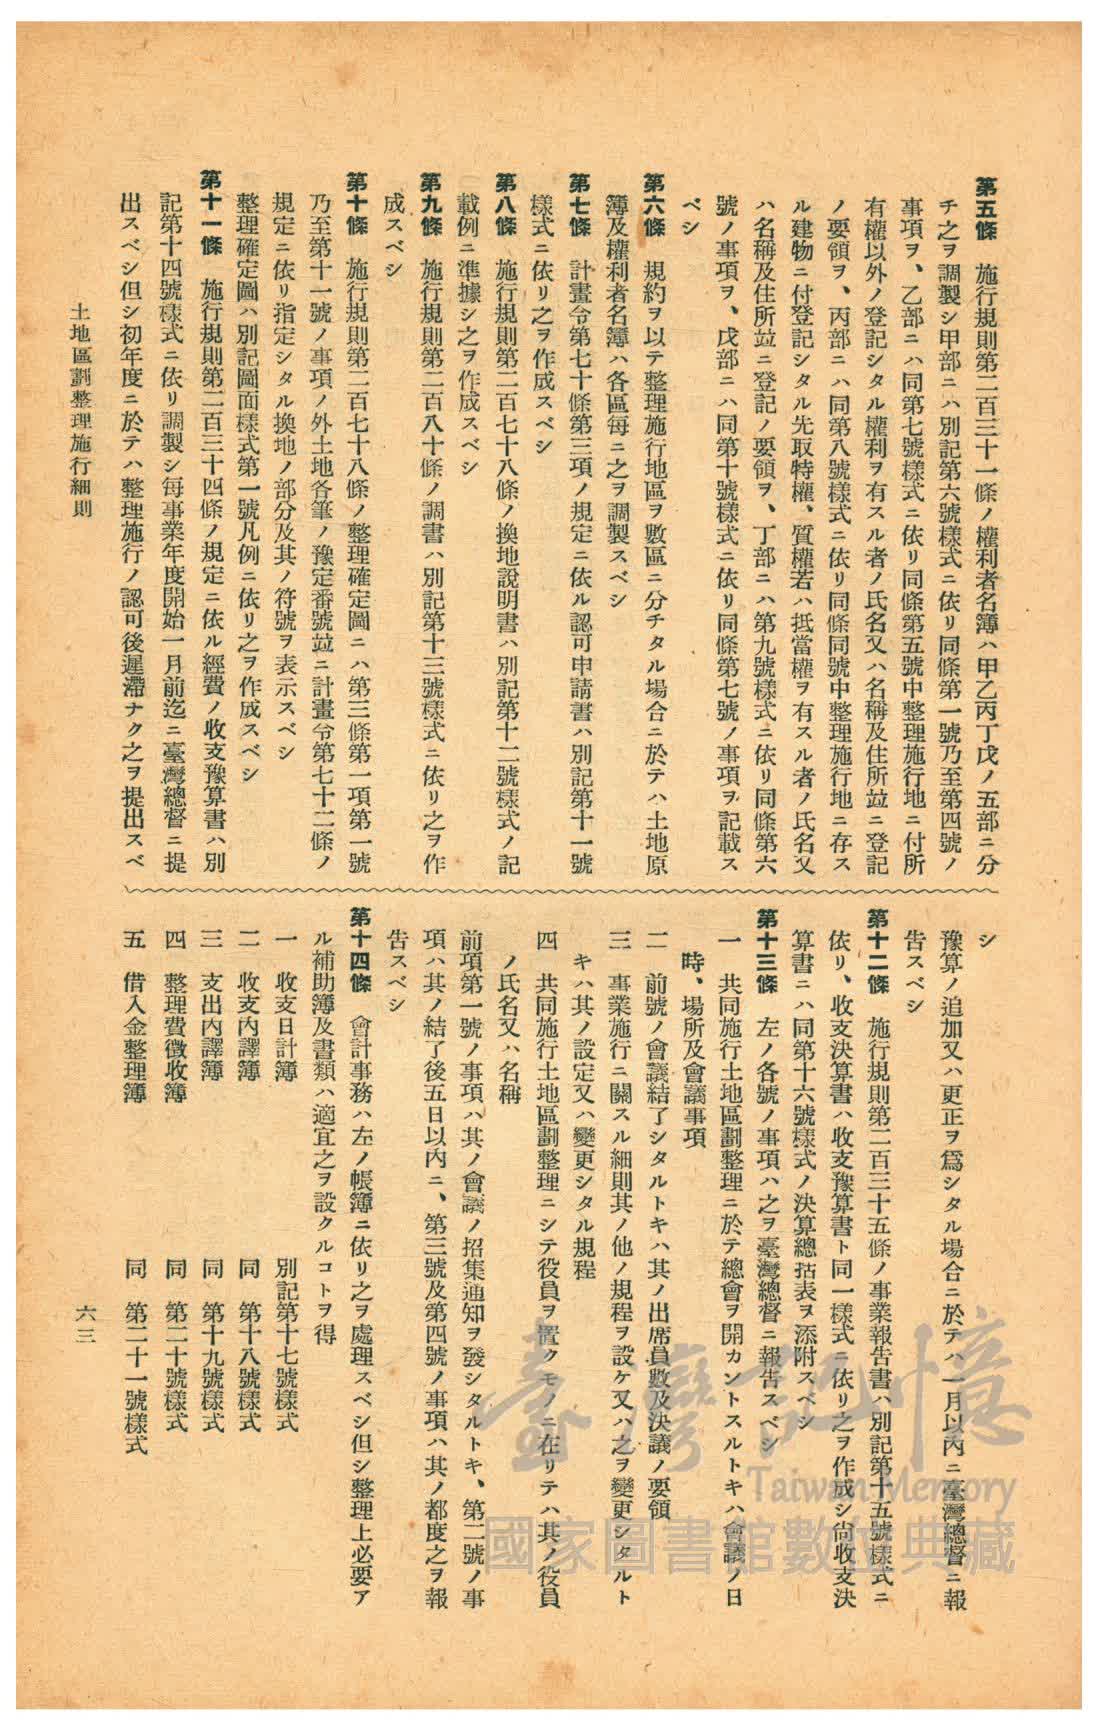 第五條　施行規則第二百三十一條ノ權利者名簿ハ甲乙丙丁戊ノ五部ニ分
チ之ヲ調製シ甲部ニハ別記第六號樣式ニ依リ同條第一號乃至第四號ノ
事項ヲ、乙部ニハ同第七號樣式ニ依リ同條第五號中整理施行地ニ付所
有權以外ノ登記シタル權利ヲ有スル者ノ氏名又ハ名稱及住所竝ニ登記
ノ要領ヲ、丙部ニハ同第八號樣式ニ依リ同條同號中整理施行地ニ存ス
ル建物ニ付登記シタル先取特權、質權若ハ抵當權ヲ有スル者ノ氏名又
ハ名稱及住所竝ニ登記ノ要領ヲ、丁部ニハ第九號樣式ニ依リ同條第六
號ノ事項ヲ、戊部ニハ同第十號樣式ニ依リ同條第七號ノ事項ヲ記載ス
ベシ
第六條　規約ヲ以テ整理施行地區ヲ數區ニ分チタル場合ニ於テハ土地原
簿及權利者名簿ハ各區每ニ之ヲ調製スベシ
第七條　計畫令第七十條第三項ノ規定ニ依ル認可申請書ハ別記第十一號
樣式ニ依リ之ヲ作成スベシ
第八條　施行規則第二百七十八條ノ換地說明書ハ別記第十二號樣式ノ記
載例ニ準據シ之ヲ作成スベシ
第九條　施行規則第二百八十條ノ調書ハ別記第十三號樣式ニ依リ之ヲ作
成スベシ
第十條　施行規則第二百七十八條ノ整理確定圖ニハ第三條第一項第一號
乃至第十一號ノ事項ノ外土地各筆ノ豫定番號竝ニ計畫令第七十二條ノ
規定ニ依リ指定シタル換地ノ部分及其ノ符號ヲ表示スベシ
整理確定圖ハ別記圖面樣式第一號凡例ニ依リ之ヲ作成スベシ
第十一條　施行規則第二百三十四條ノ規定ニ依ル經費ノ收支豫算書ハ別
記第十四號樣式ニ依リ調製シ每事業年度開始一月前迄ニ臺灣總督ニ提
出スベシ但シ初年度ニ於テハ整理施行ノ認可後遲滯ナク之ヲ提出スベ
シ
豫算ノ追加又ハ更正ヲ爲シタル場合ニ於テハ一月以內ニ臺灣總督ニ報
告スベシ
第十二條　施行規則第二百三十五條ノ事業報告書ハ別記第十五號樣式ニ
依リ、收支決算書ハ收支豫算書ト同一樣式ニ依リ之ヲ作成シ尙收支決
算書ニハ同第十六號樣式ノ決算總括表ヲ添附スベシ
第十三條　左ノ各號ノ事項ハ之ヲ臺灣總督ニ報告スベシ
一　共同施行土地區劃整理ニ於テ總會ヲ開カントスルトキハ會議ノ日
時、場所及會議事項
二　前號ノ會議結了シタルトキハ其ノ出席員數及決議ノ要領
三　事業施行ニ關スル細則其ノ他ノ規程ヲ設ケ又ハ之ヲ變更シタルト
キハ其ノ設定又ハ變更シタル規程
四　共同施行土地區劃整理ニシテ役員ヲ置クモノニ在リテハ其ノ役員
ノ氏名又ハ名稱
前項第一號ノ事項ハ其ノ會議ノ招集通知ヲ發シタルトキ、第二號ノ事
項ハ其ノ結了後五日以內ニ、第三號及第四號ノ事項ハ其ノ都度之ヲ報
告スベシ
第十四條　會計事務ハ左ノ帳簿ニ依リ之ヲ處理スベシ但シ整理上必要ア
ル補助簿及書類ハ適宜之ヲ設クルコトヲ得
一　收支日計簿　別記第十七號樣式
二　收支內譯簿　同　第十八號樣式
三　支出內譯簿　同　第十九號樣式
四　整理費徵收簿　同　第二十號樣式
五　借入金整理簿　同　第二十一號樣式
土地區劃整理施行細則
六三
臺灣記憶
Taiwan Memory
國家圖書館數位典藏